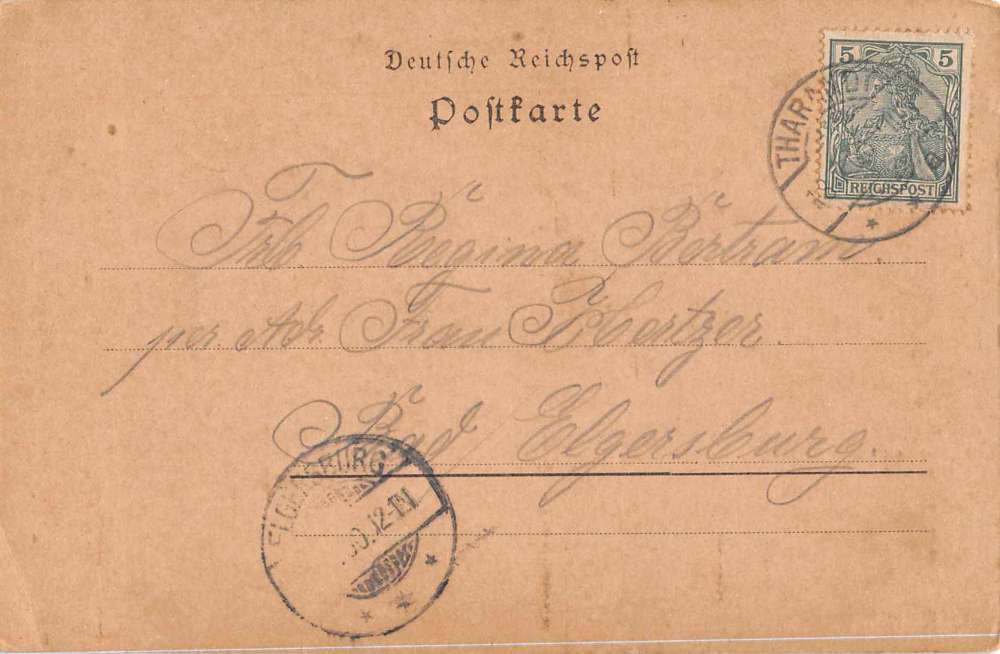 Deutsche Reichspost
Postkarte
5 5
THARANDT
REICHSPOST
Frl. Regina Bertram
per Adr. Frau Hertzer.
Bad Elgersburg.
ELGERSBURG
12-1N.